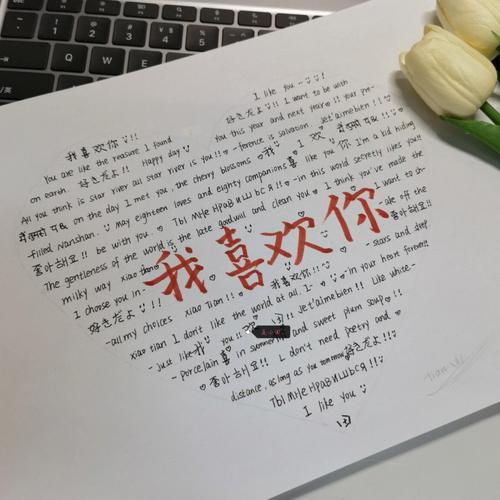 I like you
我喜欢你!!
好きだよ!! I want to be with
You are like the reason I found
you this year and next year!! Your pre-
on earth. 好きだよ!! Happy day
-ference is salvation. Jet'aimebien!!!
All you think is star river all star river is you!!
I 欢
like you 你 I'm a kid hiding
on the day I met you, the cherry blossoms
-in this world secretly likes you!!
filled Nanshan. May eighteen loves and eighty companions 喜
좋아해요!! be with you.
Tbl MHe HPaBИШbcЯ!!
I think you've made the
The gentleness of the world is the late goodwill and clean you
I want to
milky way xiao tian
我喜欢你
I choose you in
off the
좋아해요!!
好きだよ!!!
-all my choices xiao Tian!!
我喜欢你!!
-stars and deep
xiao tian I don't like the world at all. I
in your heart forever!!
-Just like 我 you!!
Jet'aimebien!! Like white-
-porcelain 喜 in summer and sweet plum soup!!
좋아해요!! I don't need poetry and
distance, as long as you 好きだよ!!
Tbl MHe HPaBИШbcЯ!!
I like you
Tian